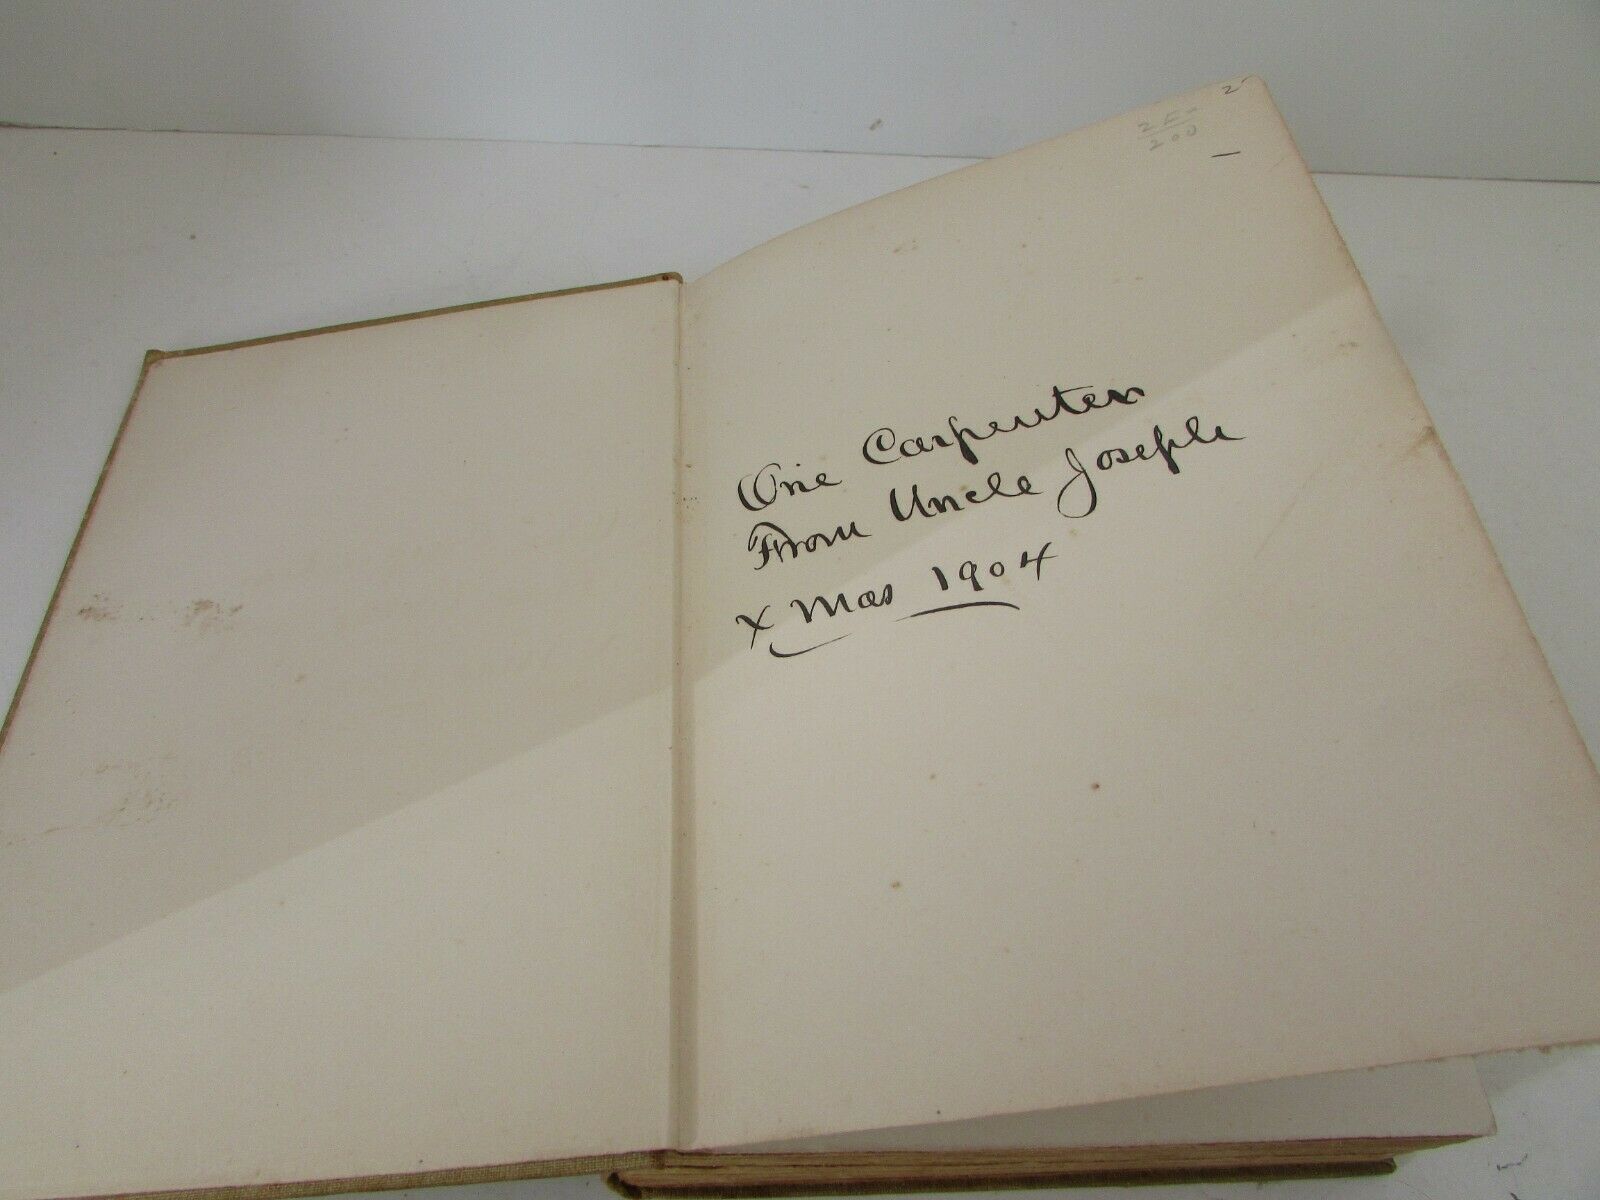 2
25
200
Orie Carpenter
From Uncle Joseph
X Mas 1904